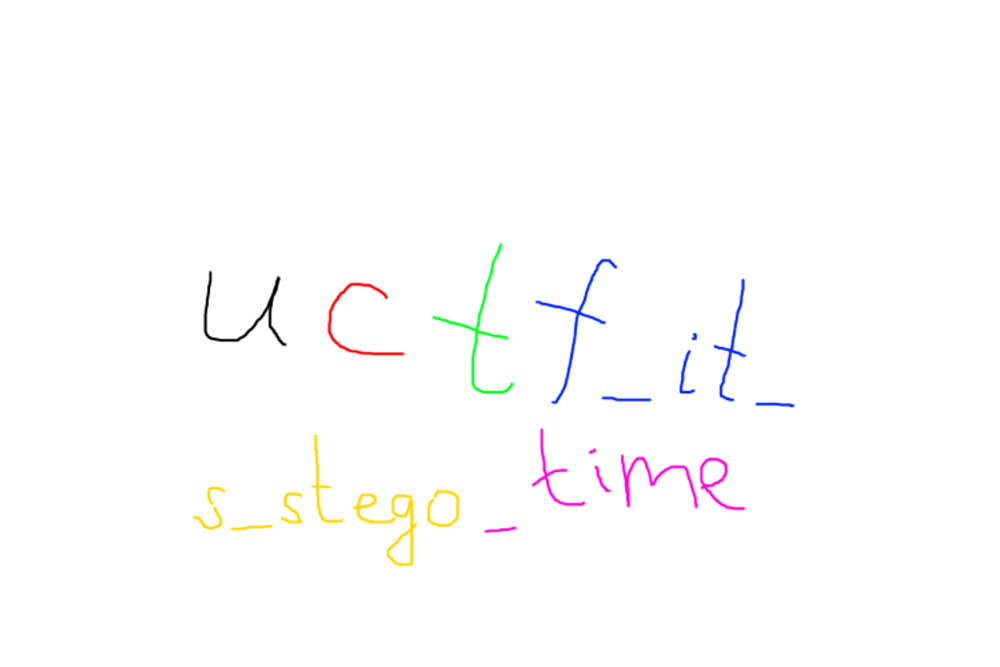 uctf_it_
s_stego_time